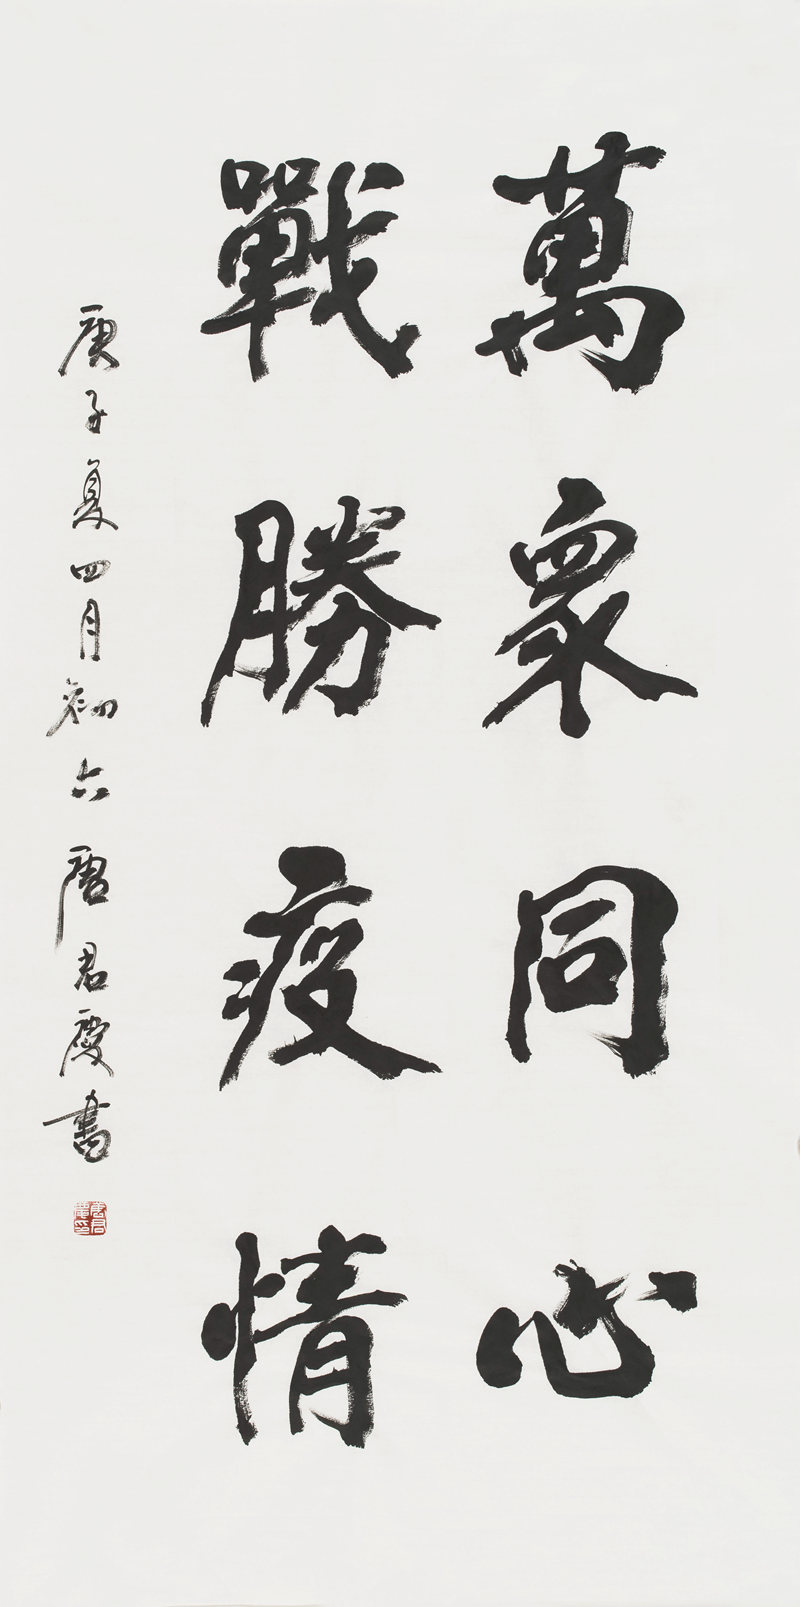 萬眾同心
戰勝疫情
庚子夏四月初六唐君慶書